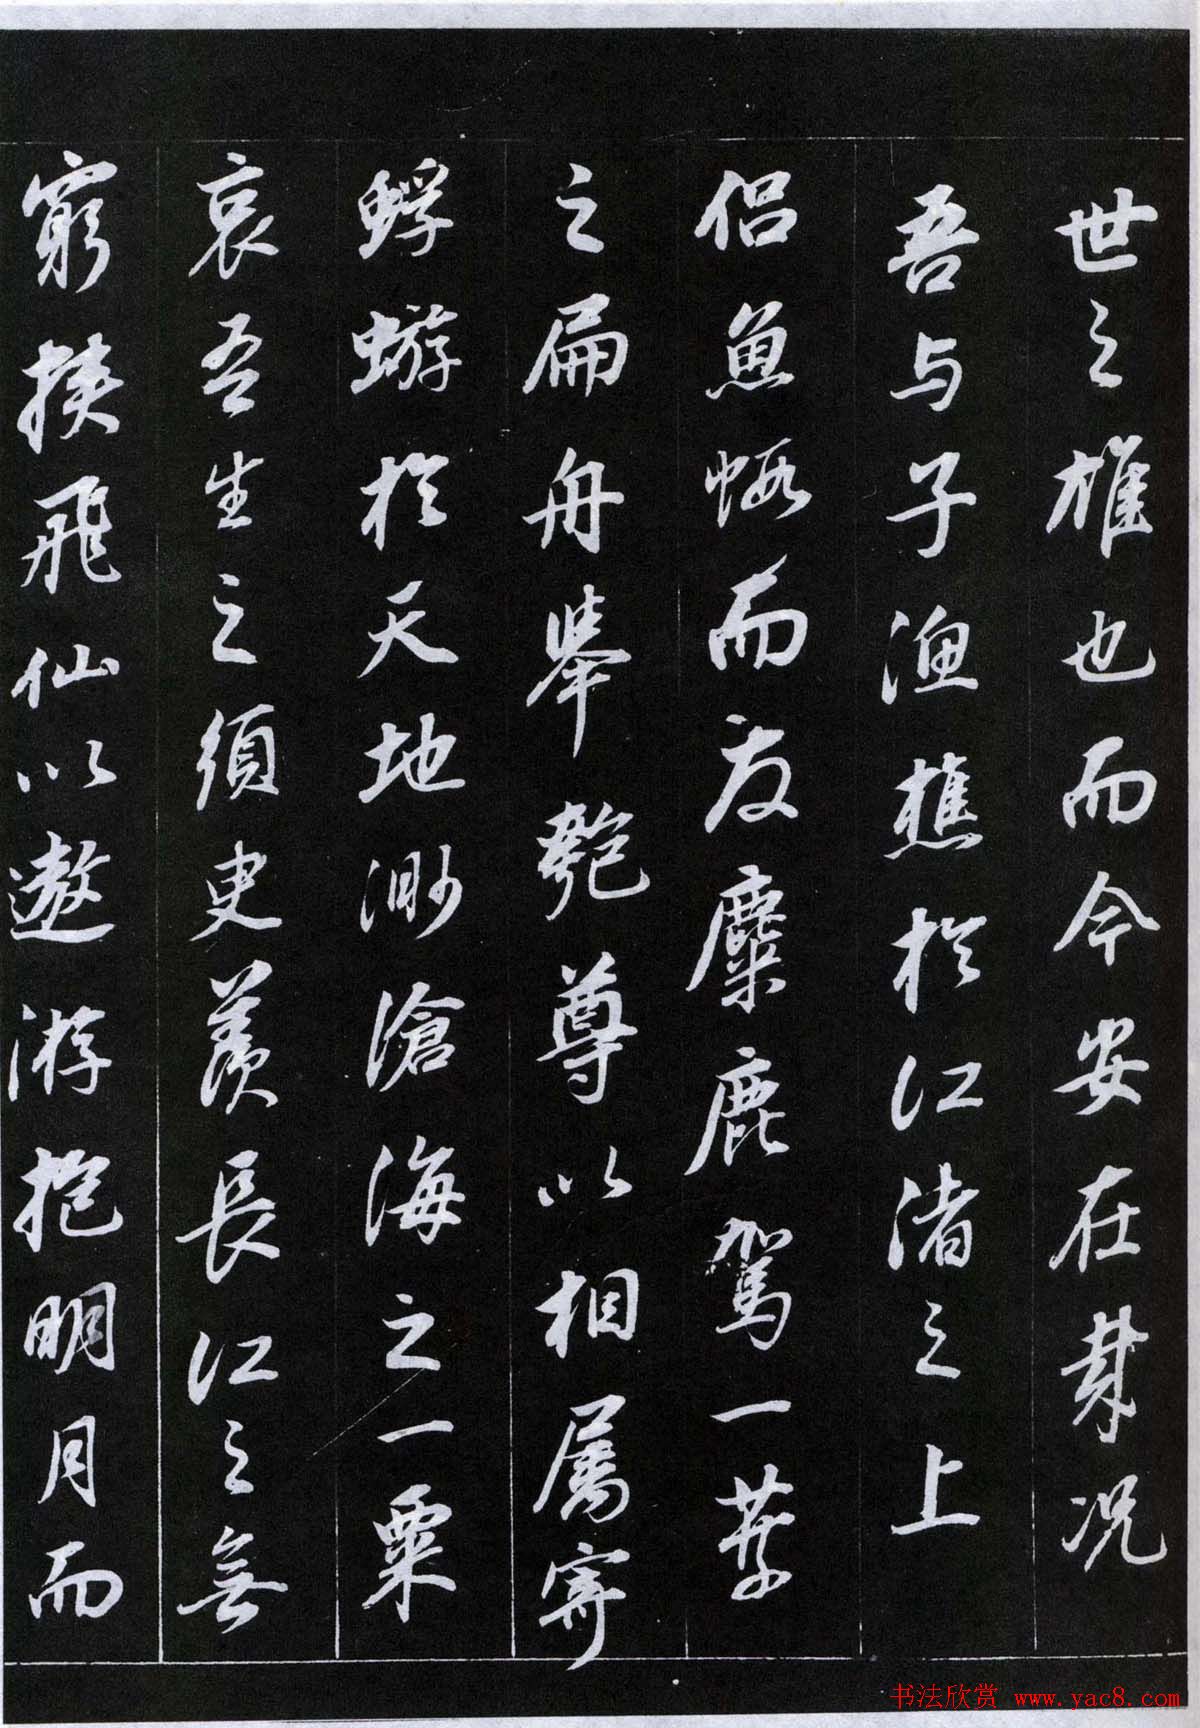 世之雄也而今安在哉况
吾与子渔樵於江渚之上
侣魚蝦而友麋鹿駕一葉
之扁舟舉匏尊以相属寄
蜉蝣於天地渺滄海之一粟
哀吾生之須臾羡長江之無
窮挟飛仙以遨游抱明月而
书法欣赏 www.yac8.com